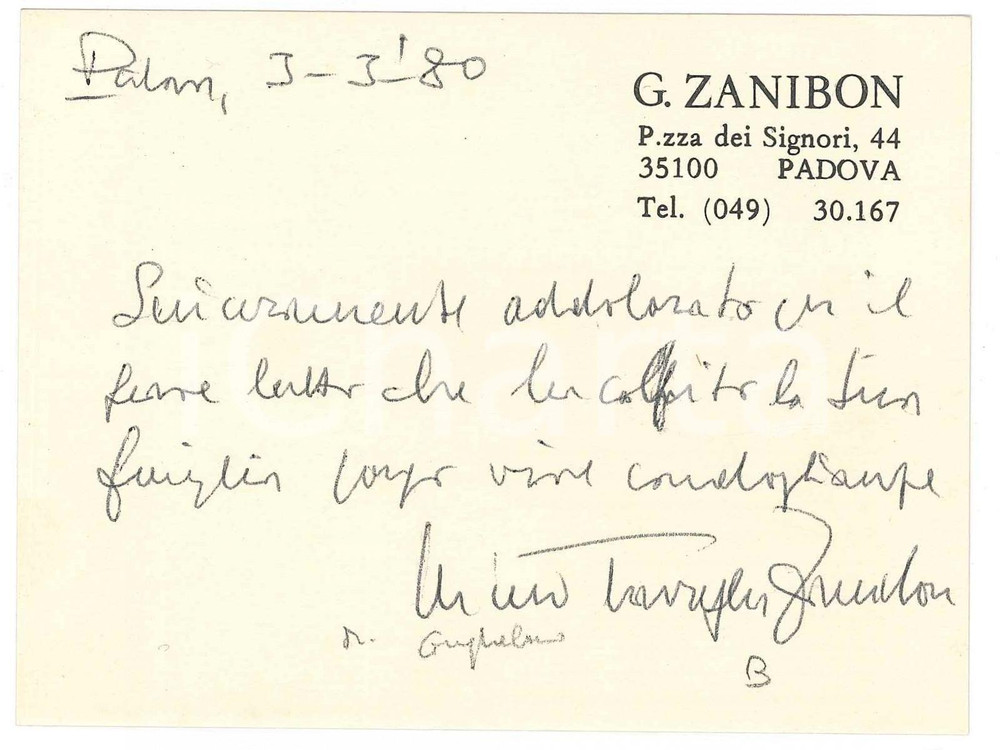 Padova, 3-3-'80
G. ZANIBON
P.zza dei Signori, 44
35100 PADOVA
Tel. (049) 30.167
Sinceramente addolorato per il
grave lutto che ha colpito la Sua
famiglia porgo vive condoglianze
Travaglia Zanibon
dr. Guglielmo
B